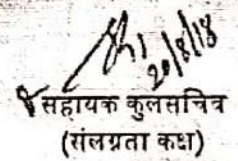 20/8/18
सहायक कुलसचिव
(संलग्नता कक्ष)